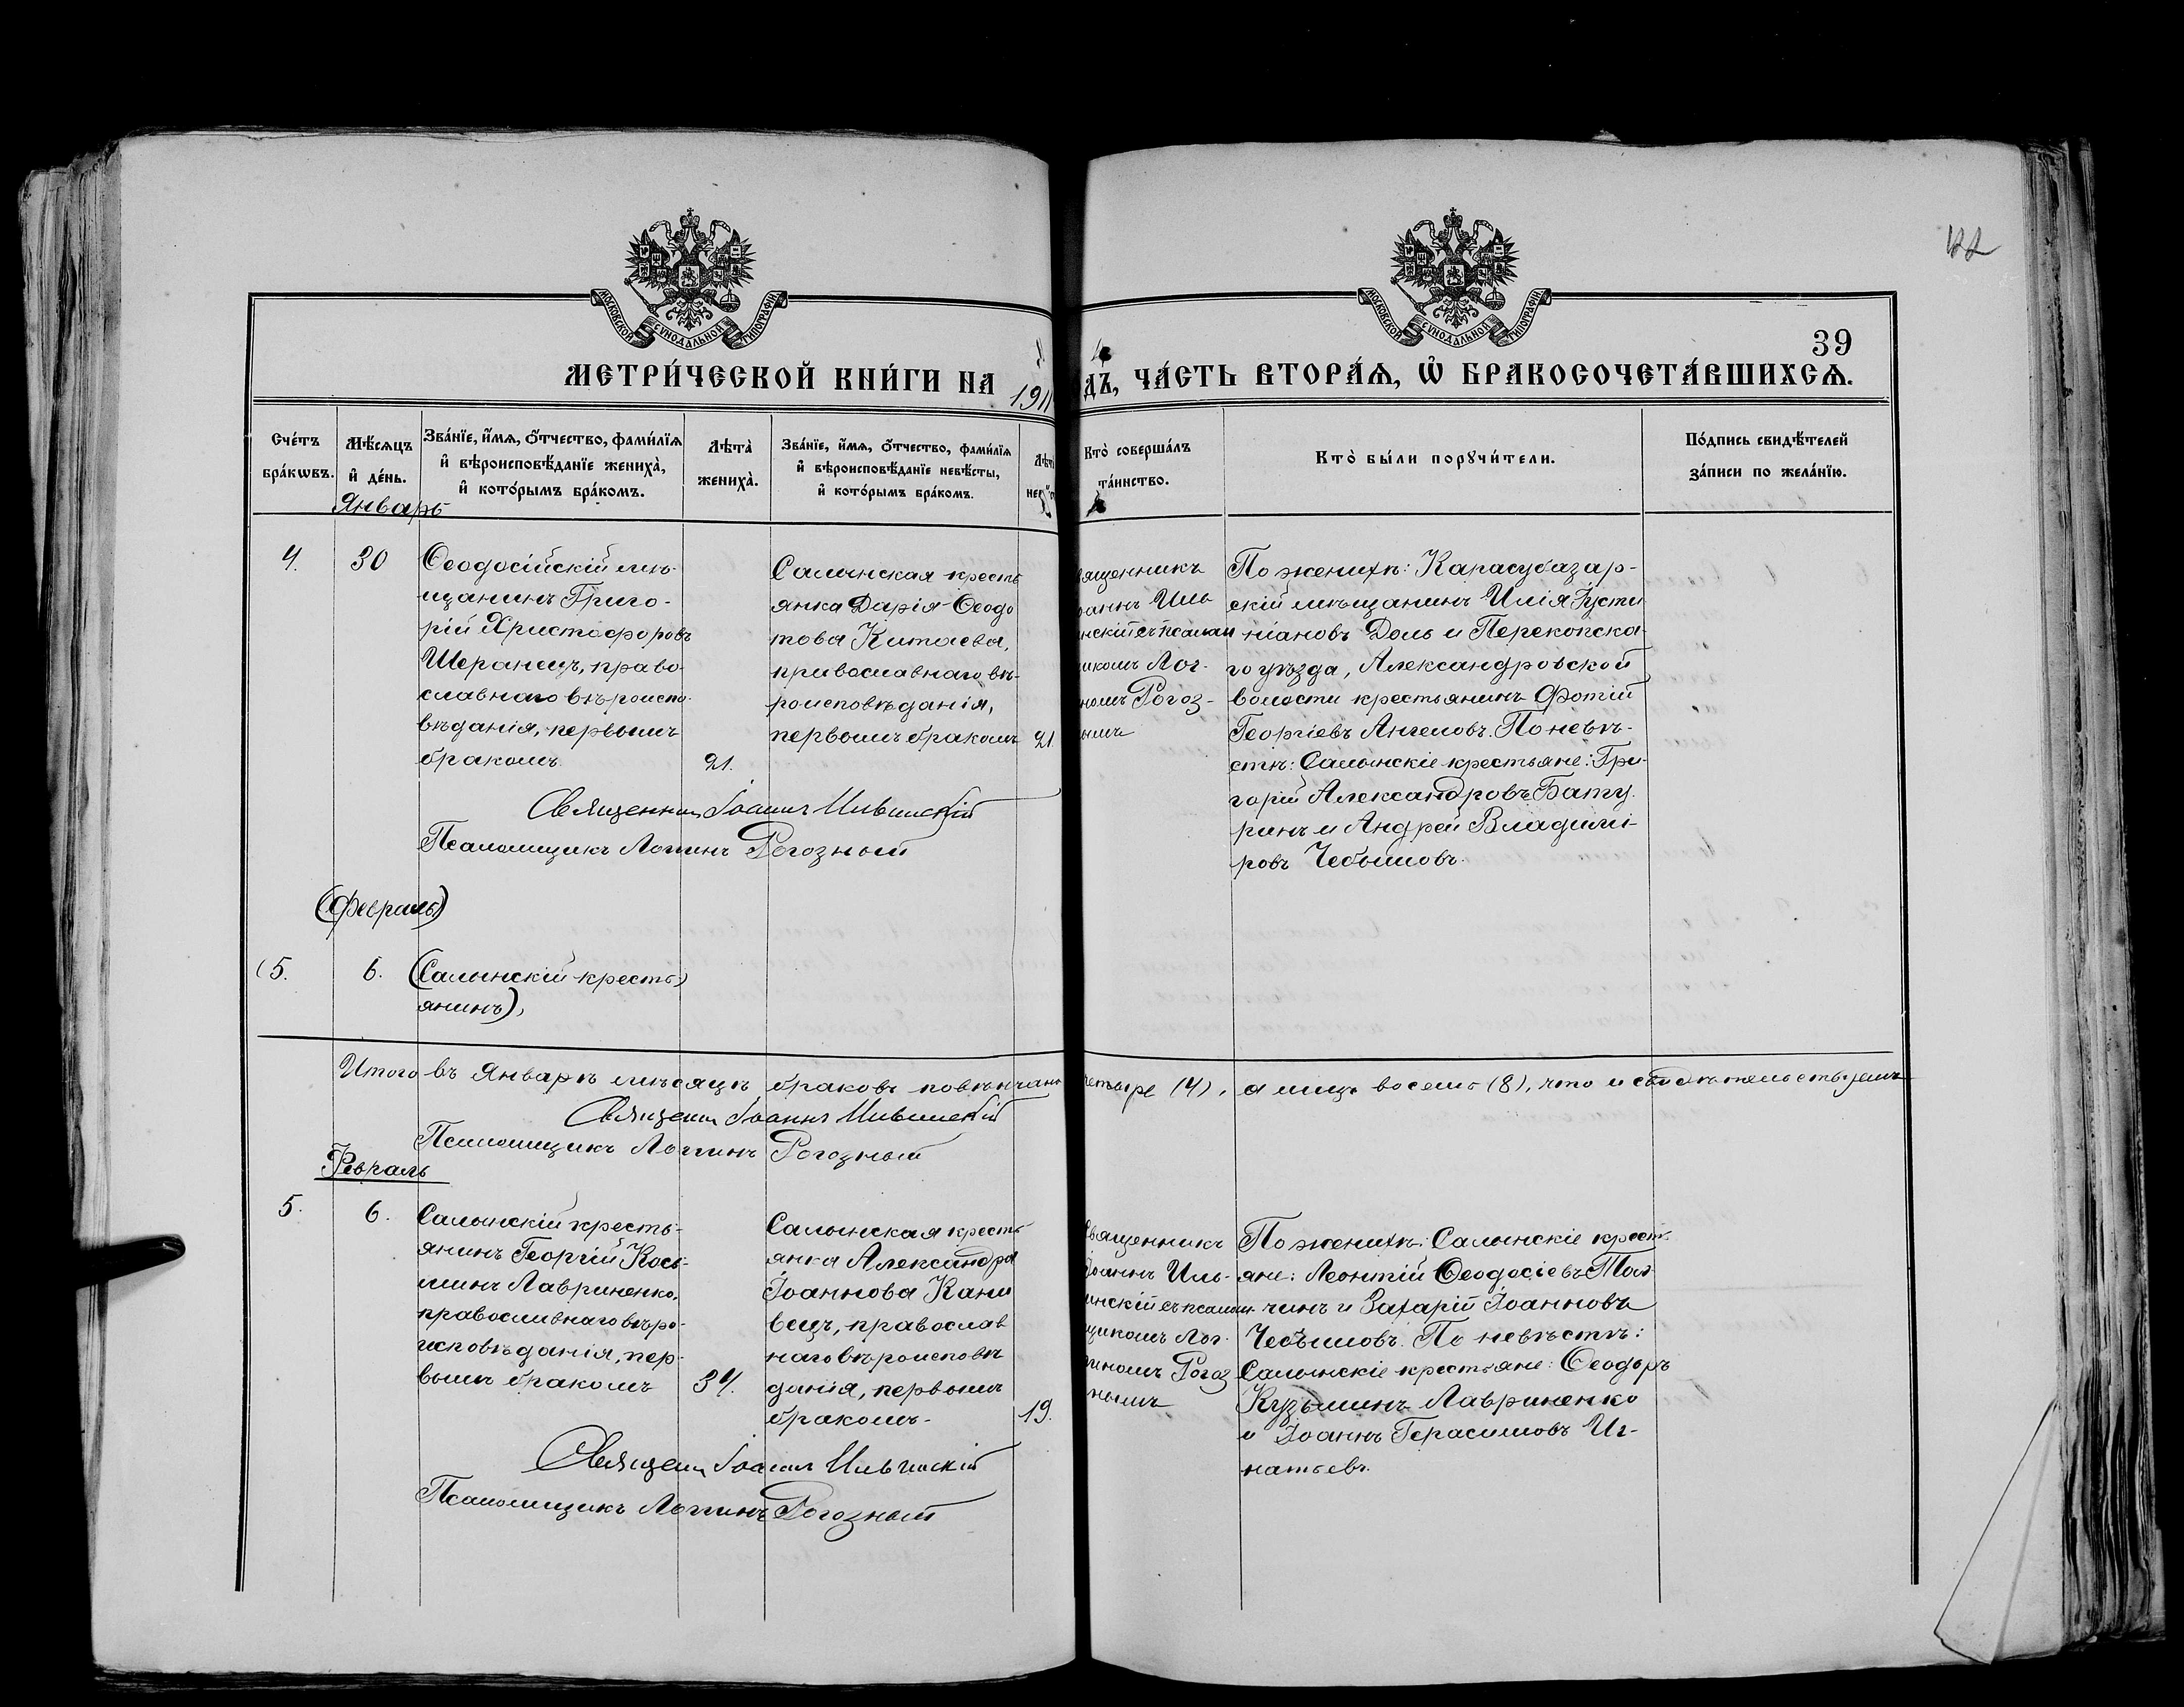 42
МОСКОВСКОЙ СУНОДАЛЬНОЙ ТИПОГРАФІИ
МОСКОВСКОЙ СУНОДАЛЬНОЙ ТИПОГРАФІИ
39
МЕТРИ́ЧЕСКОЙ КНИ́ГИ НА 1911
ДЪ, ЧА́СТЬ ВТОРА́Ѧ, Ѽ БРАКОСОЧЕТА́ВШИХСѦ.
Сче́тъ бра́кѡвъ.
Мѣ́сѧцъ и҆ де́нь.
Зва́нїе, и҆́мѧ, ѻ҆́тчество, фами́лїѧ и҆ вѣроисповѣ́данїе жениха̀, и҆ кото́рымъ бра́комъ.
Лѣта̀ жениха̀.
Зва́нїе, и҆́мѧ, ѻ҆́тчество, фами́лїѧ и҆ вѣроисповѣ́данїе невѣ́сты, и҆ кото́рымъ бра́комъ.
Кто̀ соверша́лъ та́инство.
Кто̀ бы́ли порꙋчи́тели.
По́дпись свидѣ́телей за́писи по жела́нїю.
Январь
4.
30
Ѳеодосійскій мѣ-
щанинъ Григо-
рій Христофоровъ
Шеранецъ, право-
славнаго вѣроиспо-
вѣданія, первымъ
бракомъ.
21.
Салынская кресть
янка Дарія Ѳеодо
това Китаева,
православнаго вѣ-
роисповѣданія,
первымъ бракомъ
21.
вященникъ
оаннъ Иль
нскій съ псалом
икомъ Лог-
номъ Рогоз-
ымъ
По женихѣ: Карасубазар-
скій мѣщанинъ Илія Густи
ніановъ Доль и Перекопска-
го уѣзда, Александровской
волости крестьянинъ Фотій
Георгіевъ Ангеловъ. По невѣ-
стѣ: Салынскіе крестьяне: Гри-
горій Александровъ Бату-
ринъ и Андрей Владимі-
ровъ Чебышовъ.
Священникъ Іоаннъ Ильинскій
Псаломщикъ Логгинъ Рогозный
(Февраль)
(5.
6.
(Салынскій кресть)
янинъ),
Итого въ Январѣ мѣсяцѣ браковъ повѣнчано
четыре (4), а лицъ восемь (8), что и свидѣтельствуемъ
Священн Іоаннъ Ильинскій
Псаломщикъ Логгинъ Рогозный
Февраль
5.
6.
Салынскій кресть-
янинъ Георгій Кось-
минъ Лавриненко,
православнаго вѣро-
исповѣданія, пер-
вымъ бракомъ
34.
Салынская кресть
янка Александра
Іоаннова Кани
вецъ, православ
наго вѣроисповѣ
данія, первымъ
бракомъ-
19.
Священникъ
Іоаннъ Иль-
инскій съ псалом-
щикомъ Лог-
гиномъ Рогоз
нымъ
По женихѣ: Салынскіе крест-
яне: Леонтій Ѳеодосіевъ Тол-
чинъ и Захарій Іоанновъ
Чебышовъ. По невѣстѣ:
Салынскіе крестьяне: Ѳеодоръ
Кузьминъ Лавриненко
и Іоаннъ Герасимовъ Иг-
натьевъ.
Священн Іоаннъ Ильинскій
Псаломщикъ Логгинъ Рогозный